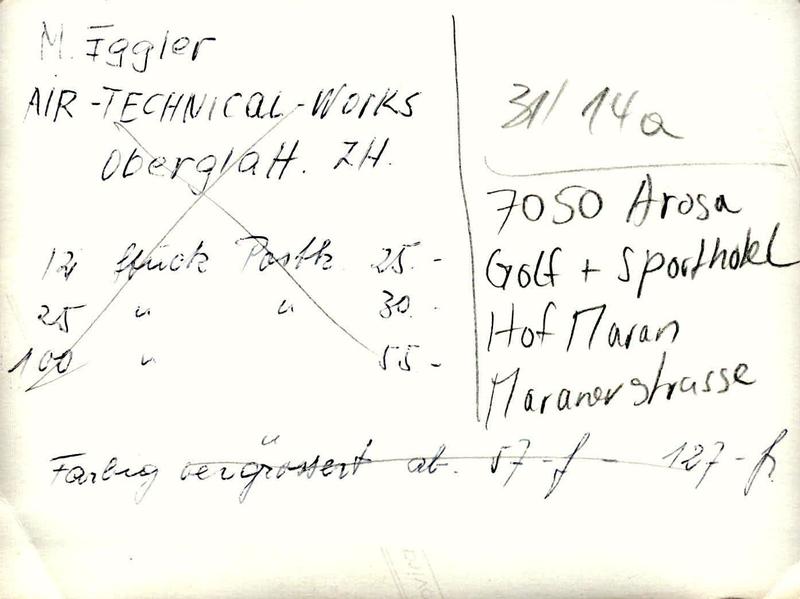 M. Eggler
AIR-TECHNICAL-WORKS
Oberglatt. ZH.
12 Stück Postk. 25.-
25 " " 30.-
100 " 55.-
31/14a
7050 Arosa
Golf + Sporthotel
Hof Maran
Maranerstrasse
Farbig vergrössert ab. 57-f - 127-fr